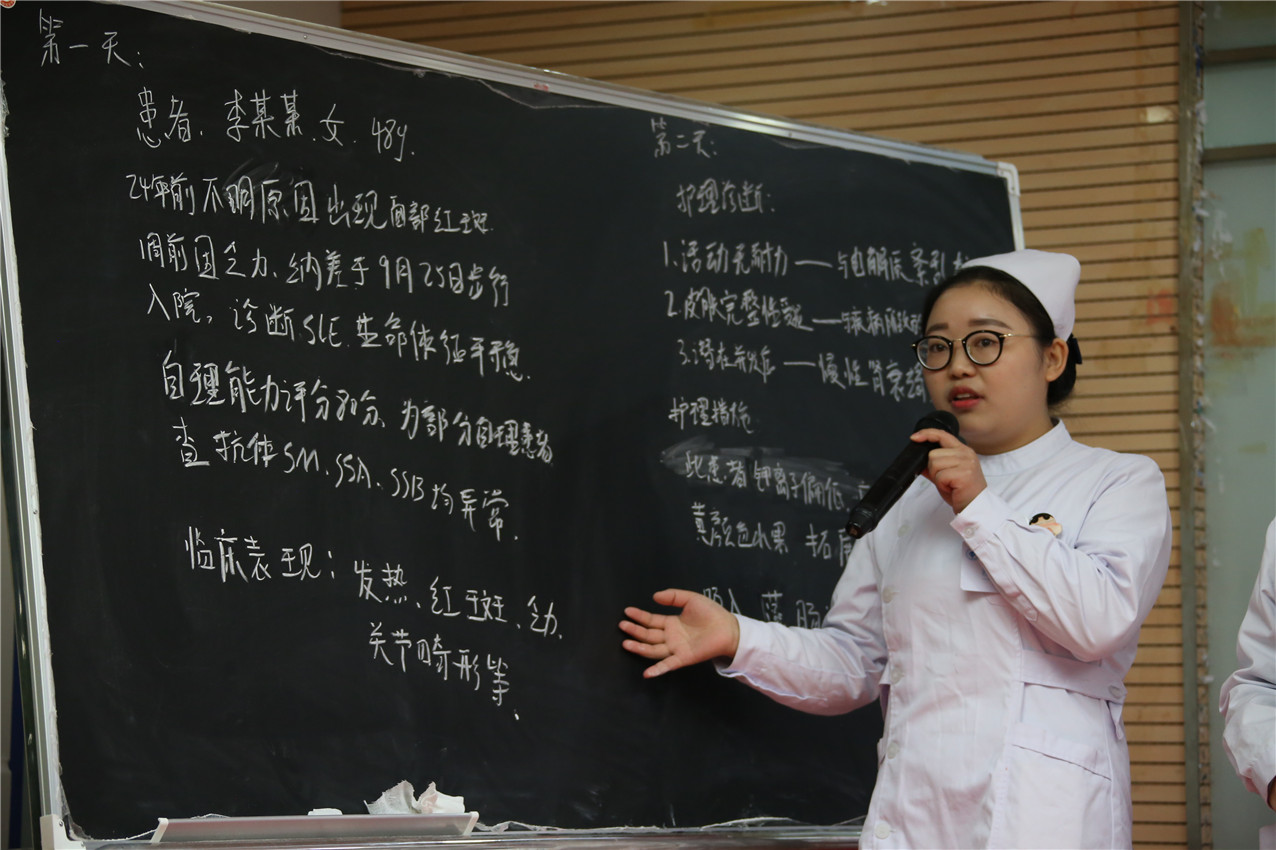 第一天:
患者、李某某、女、48y.
24年前不明原因出现面部红斑.
1周前因乏力、纳差于9月25日步行
入院,诊断SLE.生命体征平稳.
自理能力评分80分、为部分自理患者
查抗体SM、SSA、SSB均异常.
临床表现:发热、红斑、乏力、
关节畸形等.
第二天:
护理诊断:
1.活动无耐力——与电解质紊乱
2.皮肤完整性受损——与疾病
3.潜在并发症——慢性肾衰
护理措施
此患者钾离子偏低
水果